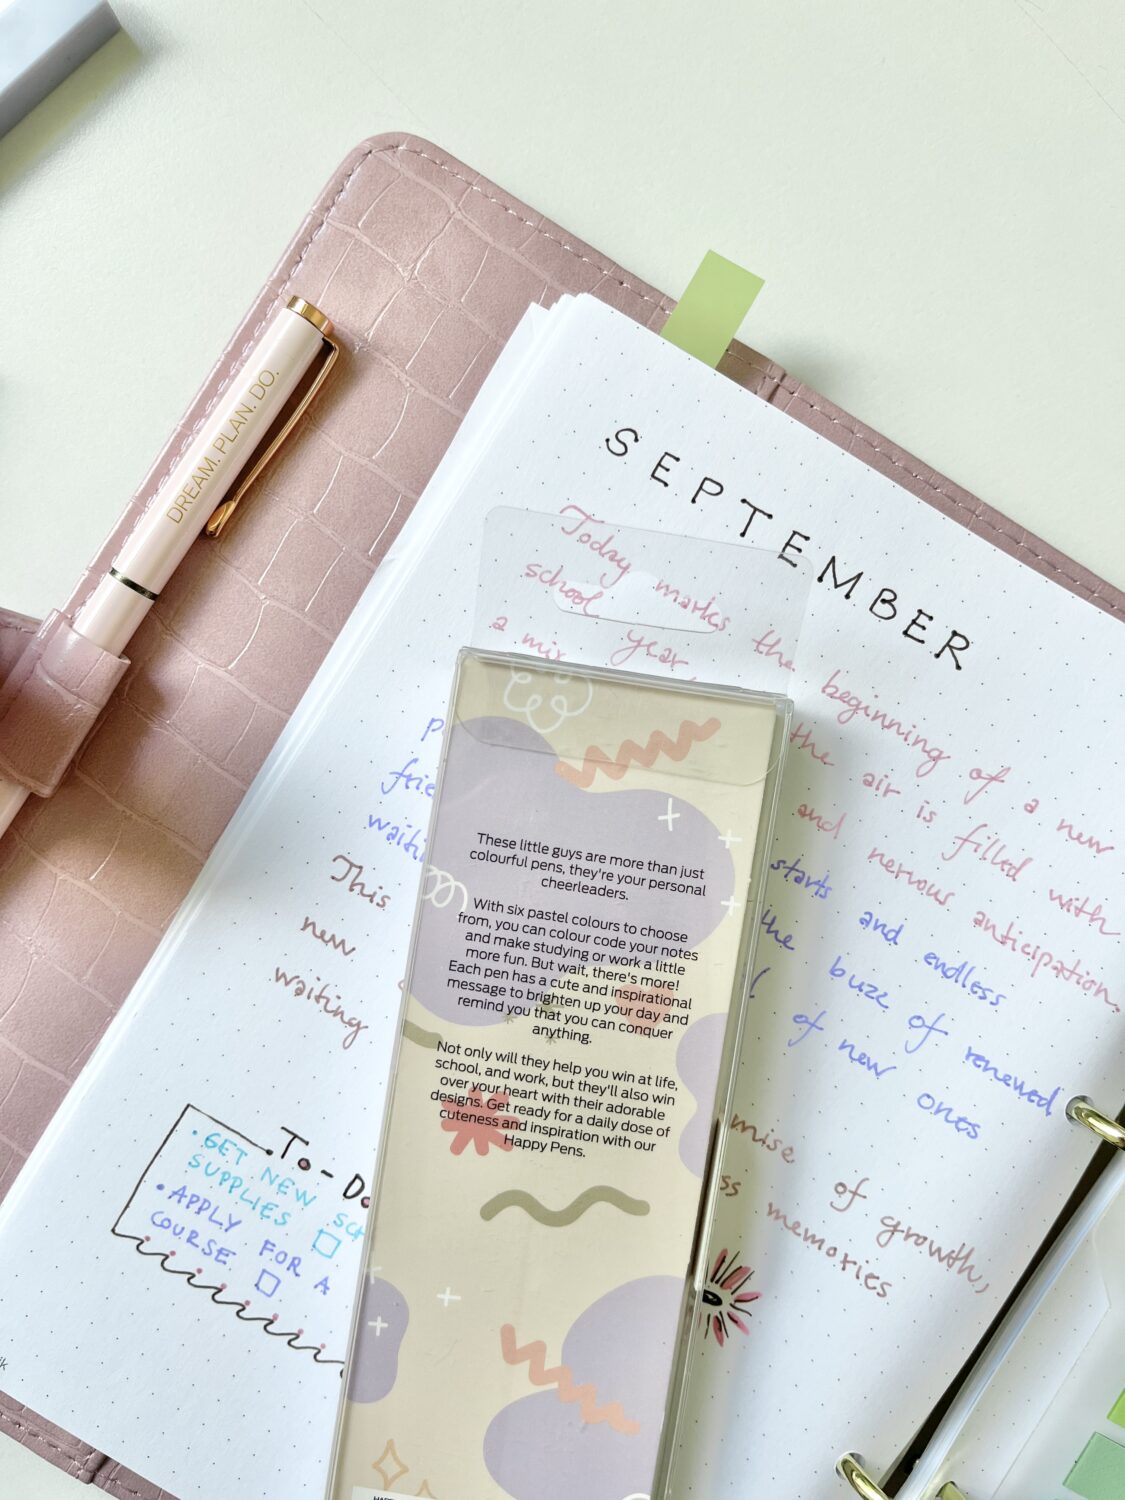 DREAM. PLAN. DO.
SEPTEMBER
Today marks the beginning of a new
school year, the air is filled with
a mix and nervous anticipation.
starts and endless
the buzz of renewed
of new ones
waiting
This mise of growth,
new ss memories
waiting
To-Do
• GET NEW
SUPPLIES
• APPLY FOR A
COURSE
These little guys are more than just
colourful pens, they're your personal
cheerleaders.
With six pastel colours to choose
from, you can colour code your notes
and make studying or work a little
more fun. But wait, there's more!
Each pen has a cute and inspirational
message to brighten up your day and
remind you that you can conquer
anything.
Not only will they help you win at life,
school, and work, but they'll also win
over your heart with their adorable
designs. Get ready for a daily dose of
cuteness and inspiration with our
Happy Pens.